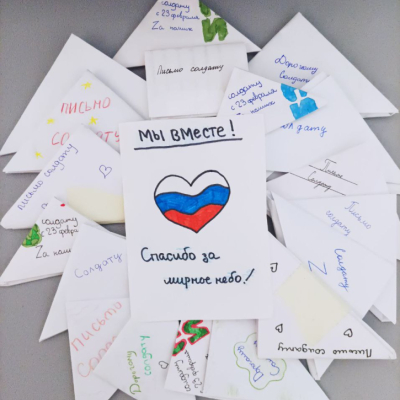 солдату
с 23 февраля
Zа наших
Дорогому
Солдату
Письмо солдату
солдату
с 23 февраля
Zа
ПИСЬМО
СОЛДАТУ
МЫ ВМЕСТЕ!
Спасибо за
мирное небо!
письмо солдату
солдату
с 23 февра
Zа наши
Солдату
ПИСЬМО
Солдату
Письмо
солдату
Солдату
Письмо солдату
Дорогому
солдату
солдату
с 23 февраля